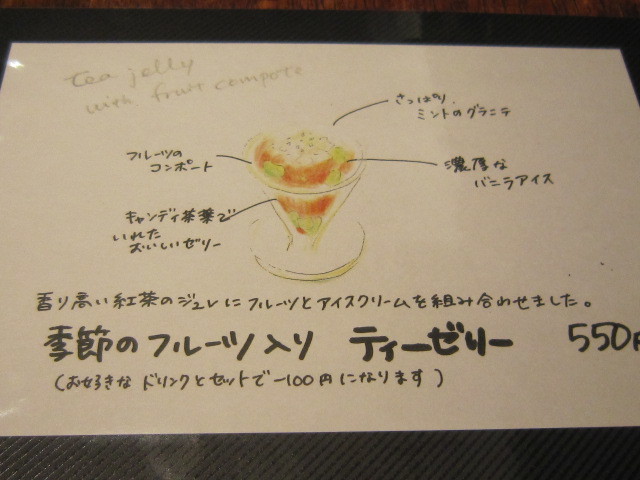 tea jelly
with fruit compote
さっぱり
ミントのグラニテ
フルーツの
コンポート
濃厚な
バニラアイス
キャンディ茶葉で
いれた
おいしいゼリー
香り高い紅茶のジュレにフルーツとアイスクリームを組み合わせました。
季節のフルーツ入り ティーゼリー 550円
(お好きなドリンクとセットで-100円になります)